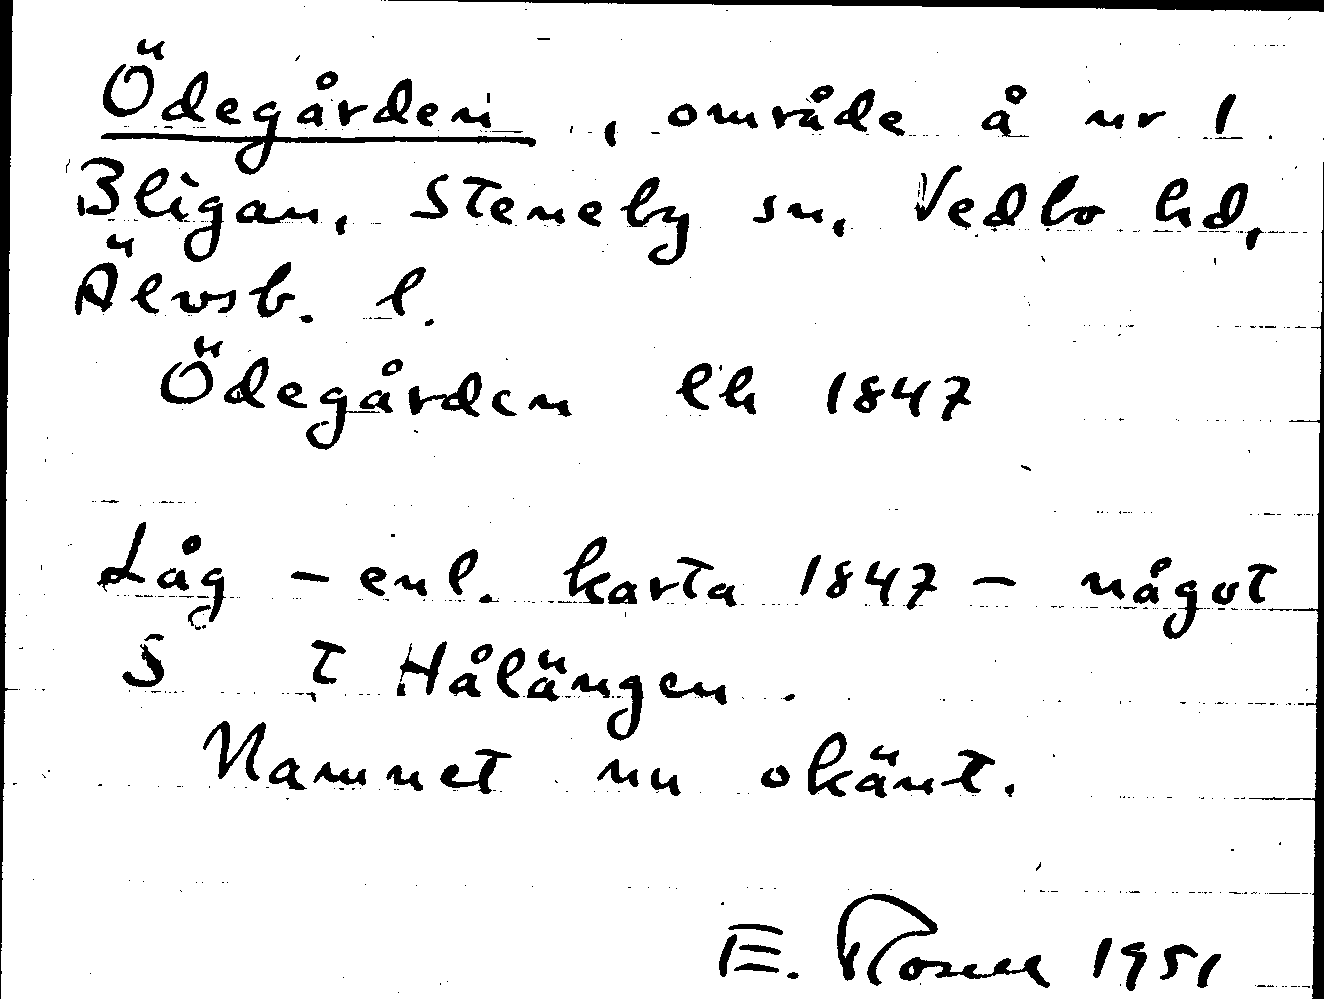 Ödegården, område å nr 1
Bligan, Steneby sn, Vedbo hd,
Älvsb. l.
Ödegården lh 1847
Låg – enl. karta 1847 – något
S t Hålängen.
Namnet nu okänt.
E. 1951